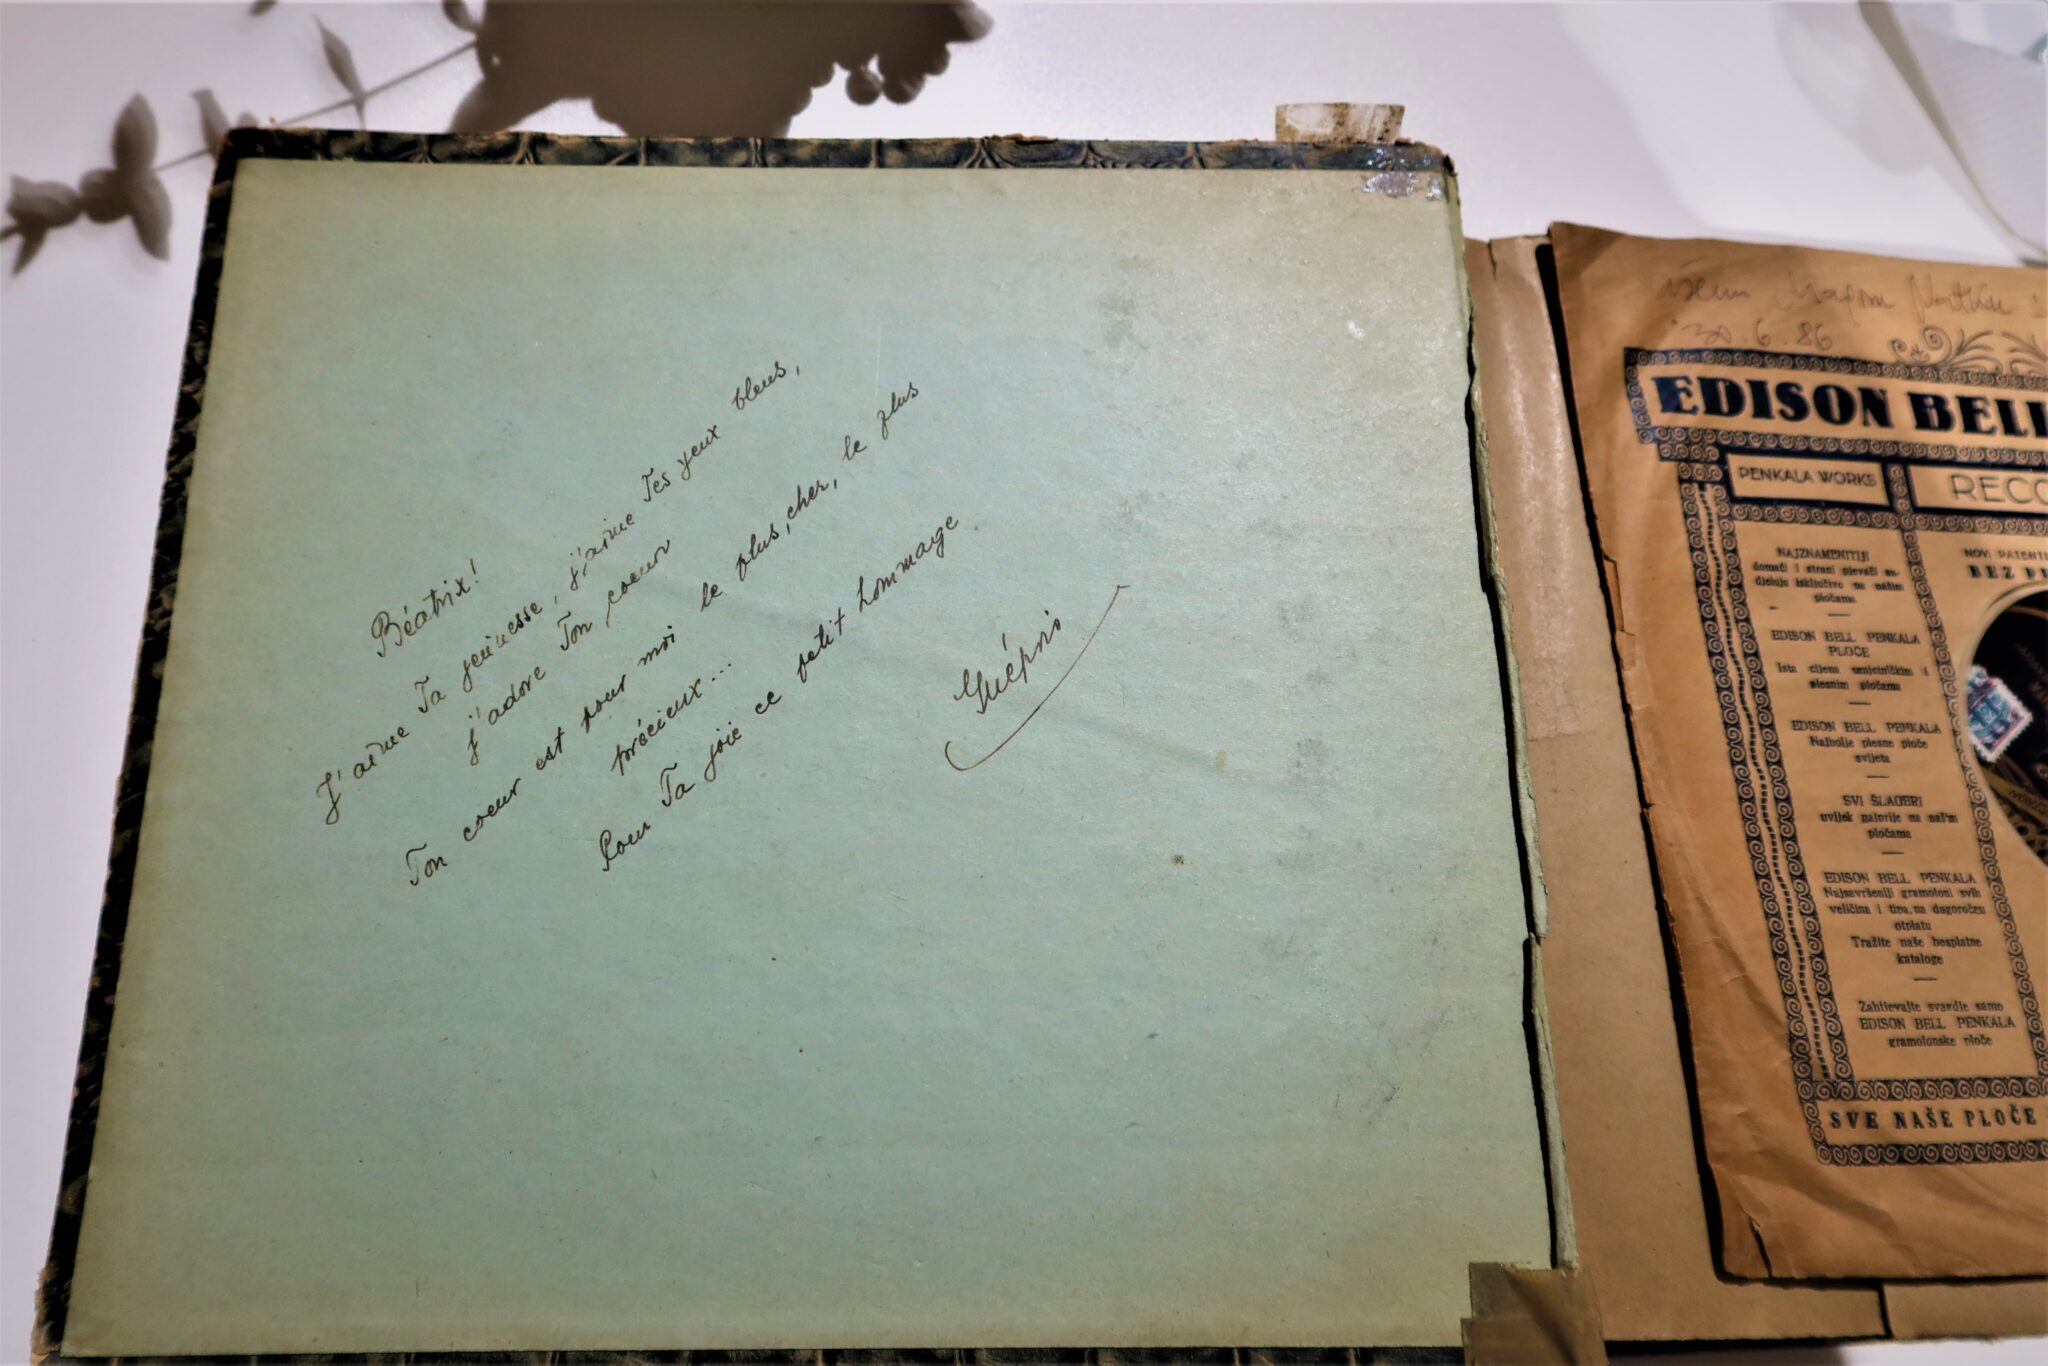 Béatrix!
J'aime Ta jeunesse, j'aime Tes yeux bleus,
j'adore Ton coeur
Ton coeur est pour moi le plus, cher, le plus
précieux...
Pour Ta joie ce petit hommage
30.6.86
EDISON BELL
PENKALA WORKS
NAJZNAMENITIJI
domaći i strani pjevači su-
djeluju isključivo na našim
pločama
EDISON BELL PENKALA
PLOČE
Ista cijena umjetničkim i
plesnim pločama
EDISON BELL PENKALA
Najbolje plesne ploče
svijeta
SVI ŠLAGERI
uvijek najprije na našim
pločama
EDISON BELL PENKALA
Najsavršeniji gramofoni svih
veličina i tipa, na dugoročnu
otplatu
Tražite naše besplatne
kataloge
Zahtievajte svagdje samo
EDISON BELL PENKALA
gramofonske ploče
SVE NAŠE PLOČE
NOVI PATENTI